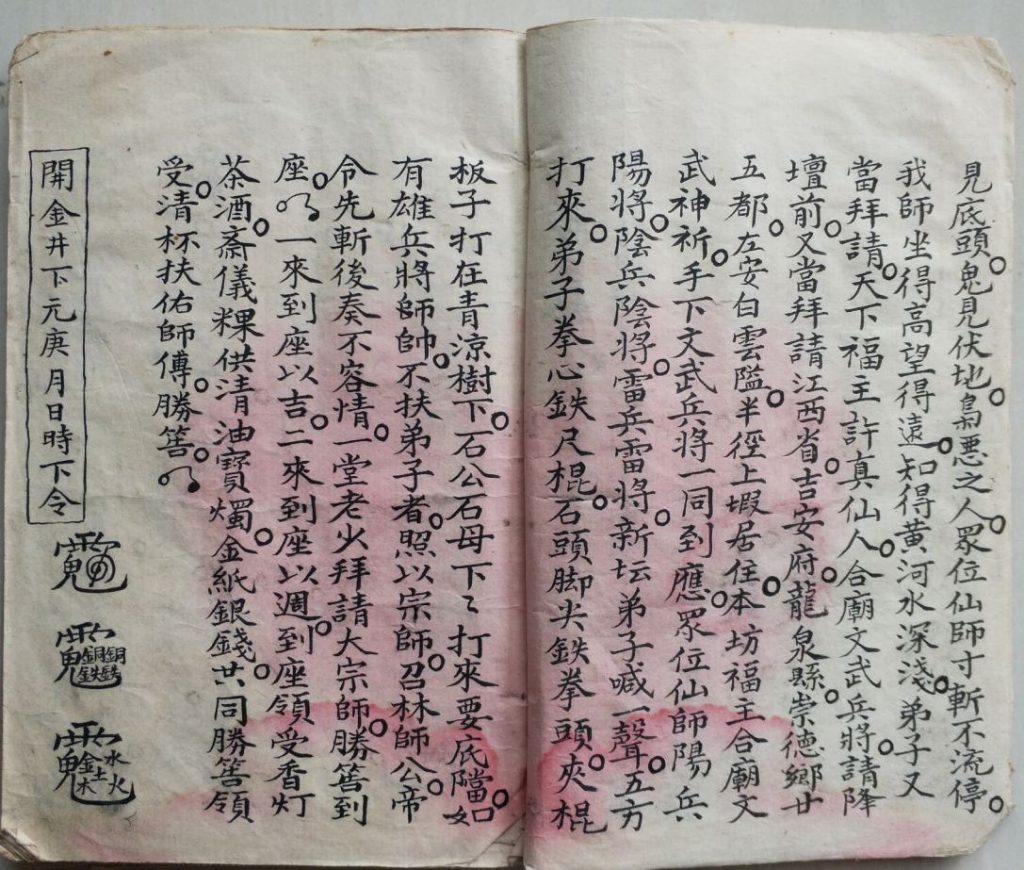 見底頭。鬼見伏地。鳥悪之人。眾位仙師寸斬不流停。
我師坐得高望得遠。知得黄河水深淺。弟子又
當拜請。天下福主許真仙人。合廟文武兵將。請降
壇前。又當拜請江西省。吉安府。龍泉縣。崇德鄉廿
五都。左安白雲隘。半徑上塅居住。本坊福主合廟文
武神祈。手下文武兵將一同到應。眾位仙師陽兵
陽將。陰兵陰將。雷兵雷將。新坛弟子喊一聲。五方
打來。弟子拳心鉄尺棍。石頭脚尖鉄拳頭。夾棍
板子打在青涼樹下。石公石母下〻打來要底擋。如
有雄兵將師帥。不扶弟子者。照以宗師。召林師公。帝
令先斬後奏不容情。一堂老少拜請大宗師。勝筶到
座。一來到座以吉。二來到座以週。到座領受香灯
茶酒。斎儀粿供清油寶燭。金紙銀錢。共同勝筶領
受。清杯扶佑師傅。勝筶。
開金井下元庚月日時下令
銅銅鉄鉄
金水土木火